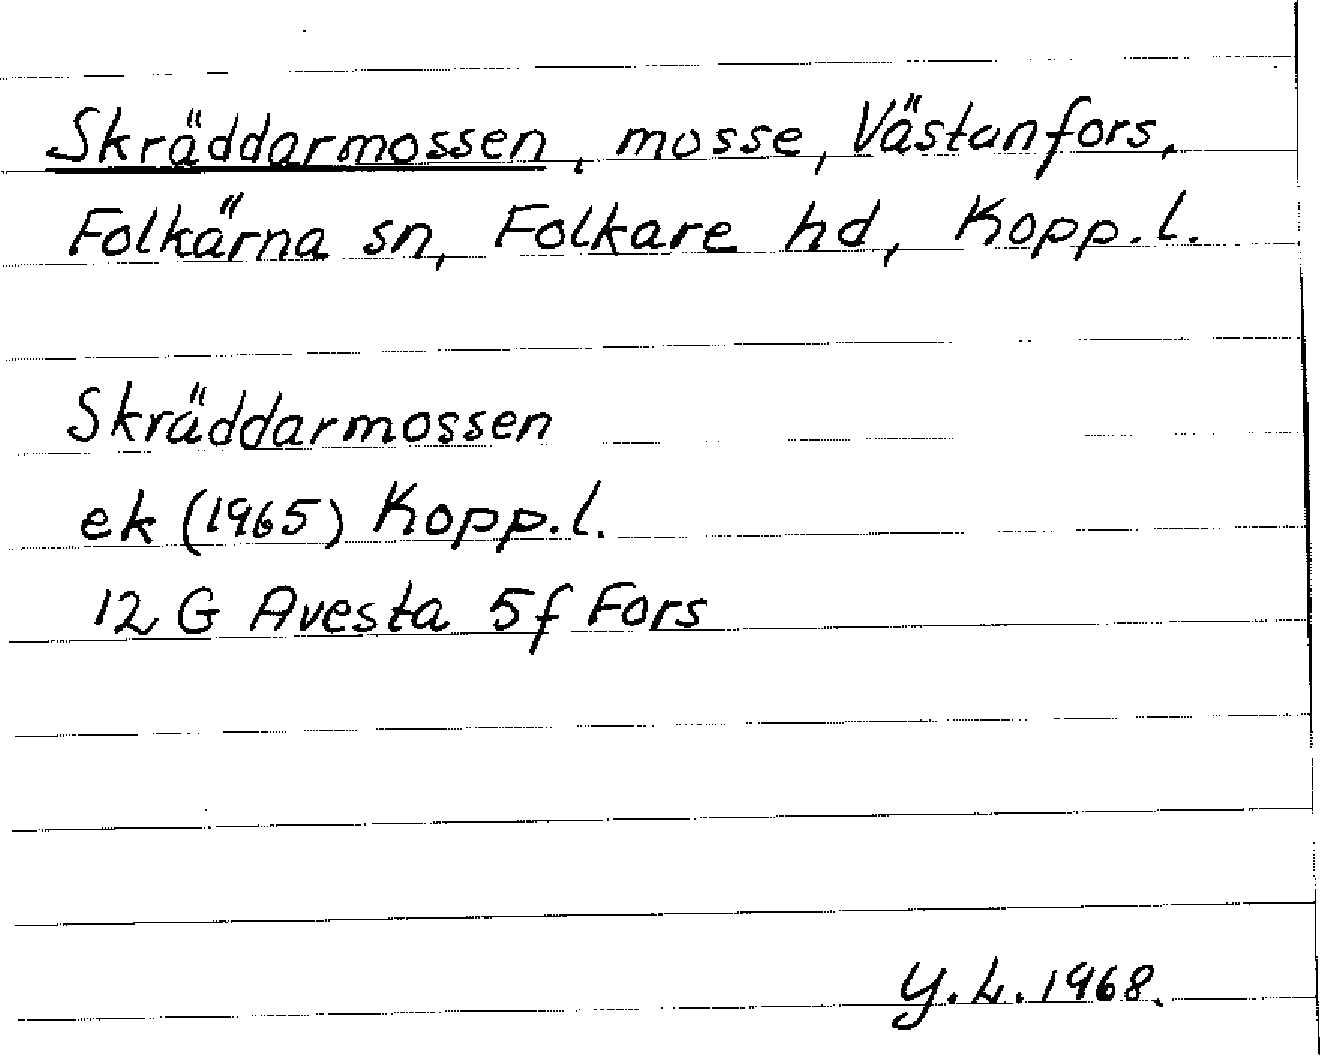 Skräddarmossen, mosse, Västanfors,
Folkärna sn, Folkare hd, Kopp.l.
Skräddarmossen
ek (1965) Kopp.l.
12 G Avesta 5f Fors
Y.L. 1968.